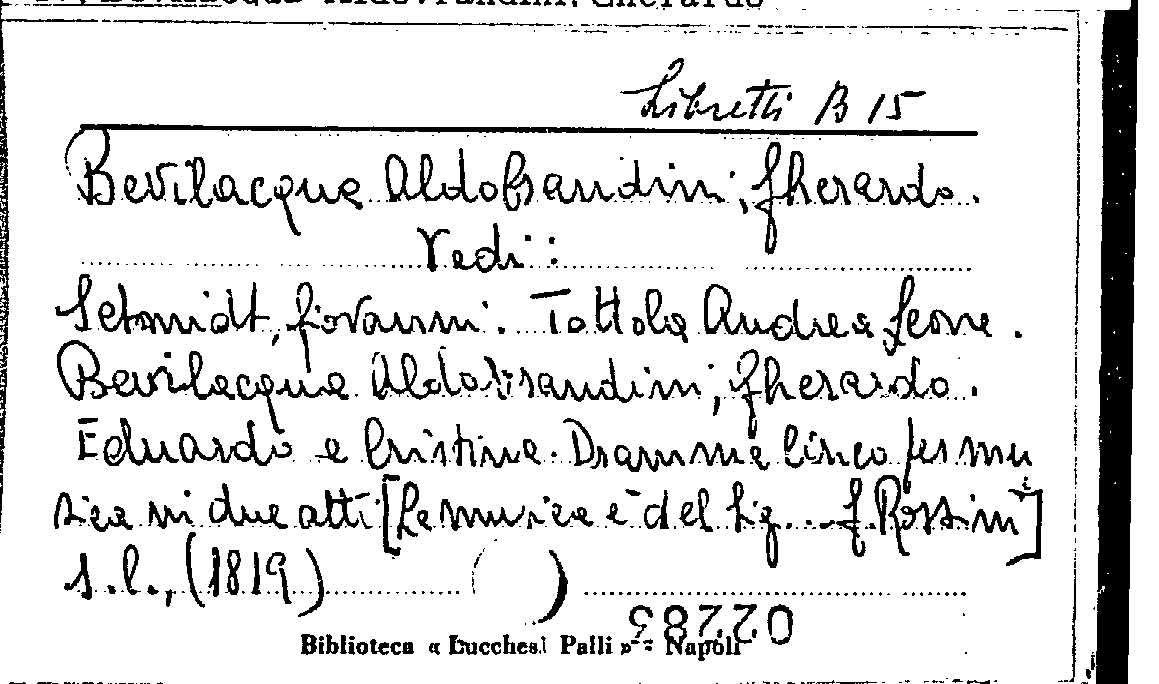 Bevilacqua Aldovrandini, Gherardo
Libretti B 15
Bevilacqua Aldobrandini, Gherardo.
Vedi:
Schmidt, Giovanni. Tottola Andrea Leone.
Bevilacqua Aldobrandini, Gherardo.
Eduardo e Cristina. Dramma lirico per mu
sica in due atti [La musica è del Sig... G. Rossini]
s.l., (1819) ( )
02283
Biblioteca « Lucchesi Palli » - Napoli